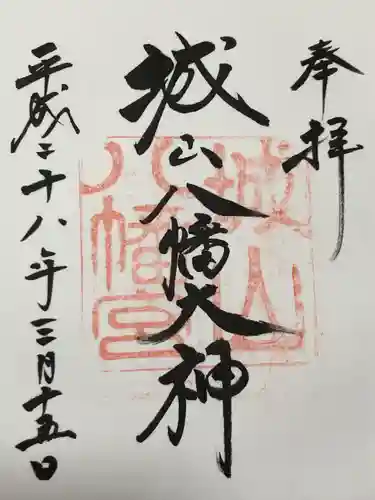 奉拝
城山八幡大神
平成二十八年三月十五日
城山
八幡宮